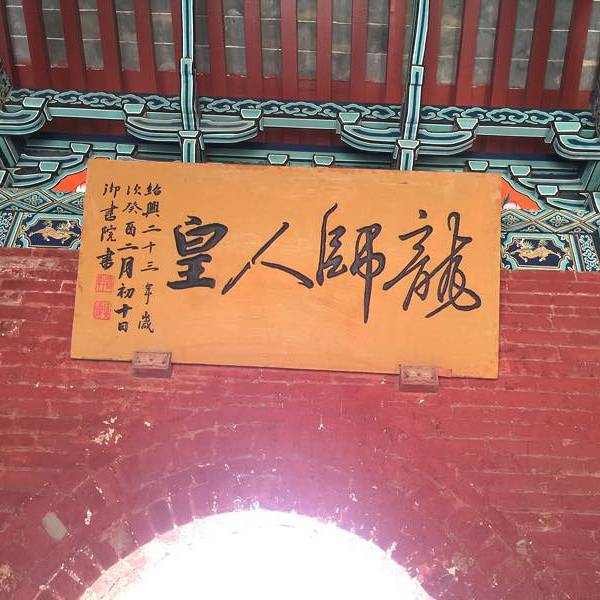 龍師人皇
紹興二十三年歲
次癸酉二月初十日
御書院書